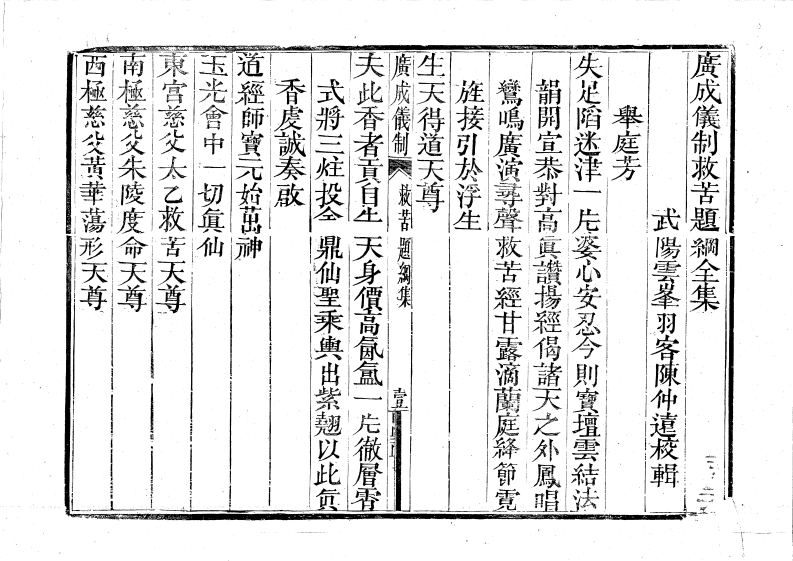 廣成儀制救苦題綱全集
武陽雲峯羽客陳仲遠校輯
舉庭芳
失足蹈迷津一片婆心安忍今則寶壇雲結法
韻開宣恭對高眞讚揚經偈諸天之外鳳唱
鸞鳴廣演尋聲救苦經甘露滴蘭庭絳節霓
旌接引於浮生
生天得道天尊
廣成儀制 救苦題綱集 壹
夫此香者貢自生天身價高氤氳一片徹層霄
式將三炷投金鼎仙聖乘輿出紫翹以此眞
香虔誠奏啟
道經師寶元始萬神
玉光會中一切眞仙
東宮慈父太乙救苦天尊
南極慈父朱陵度命天尊
西極慈父黃華蕩形天尊